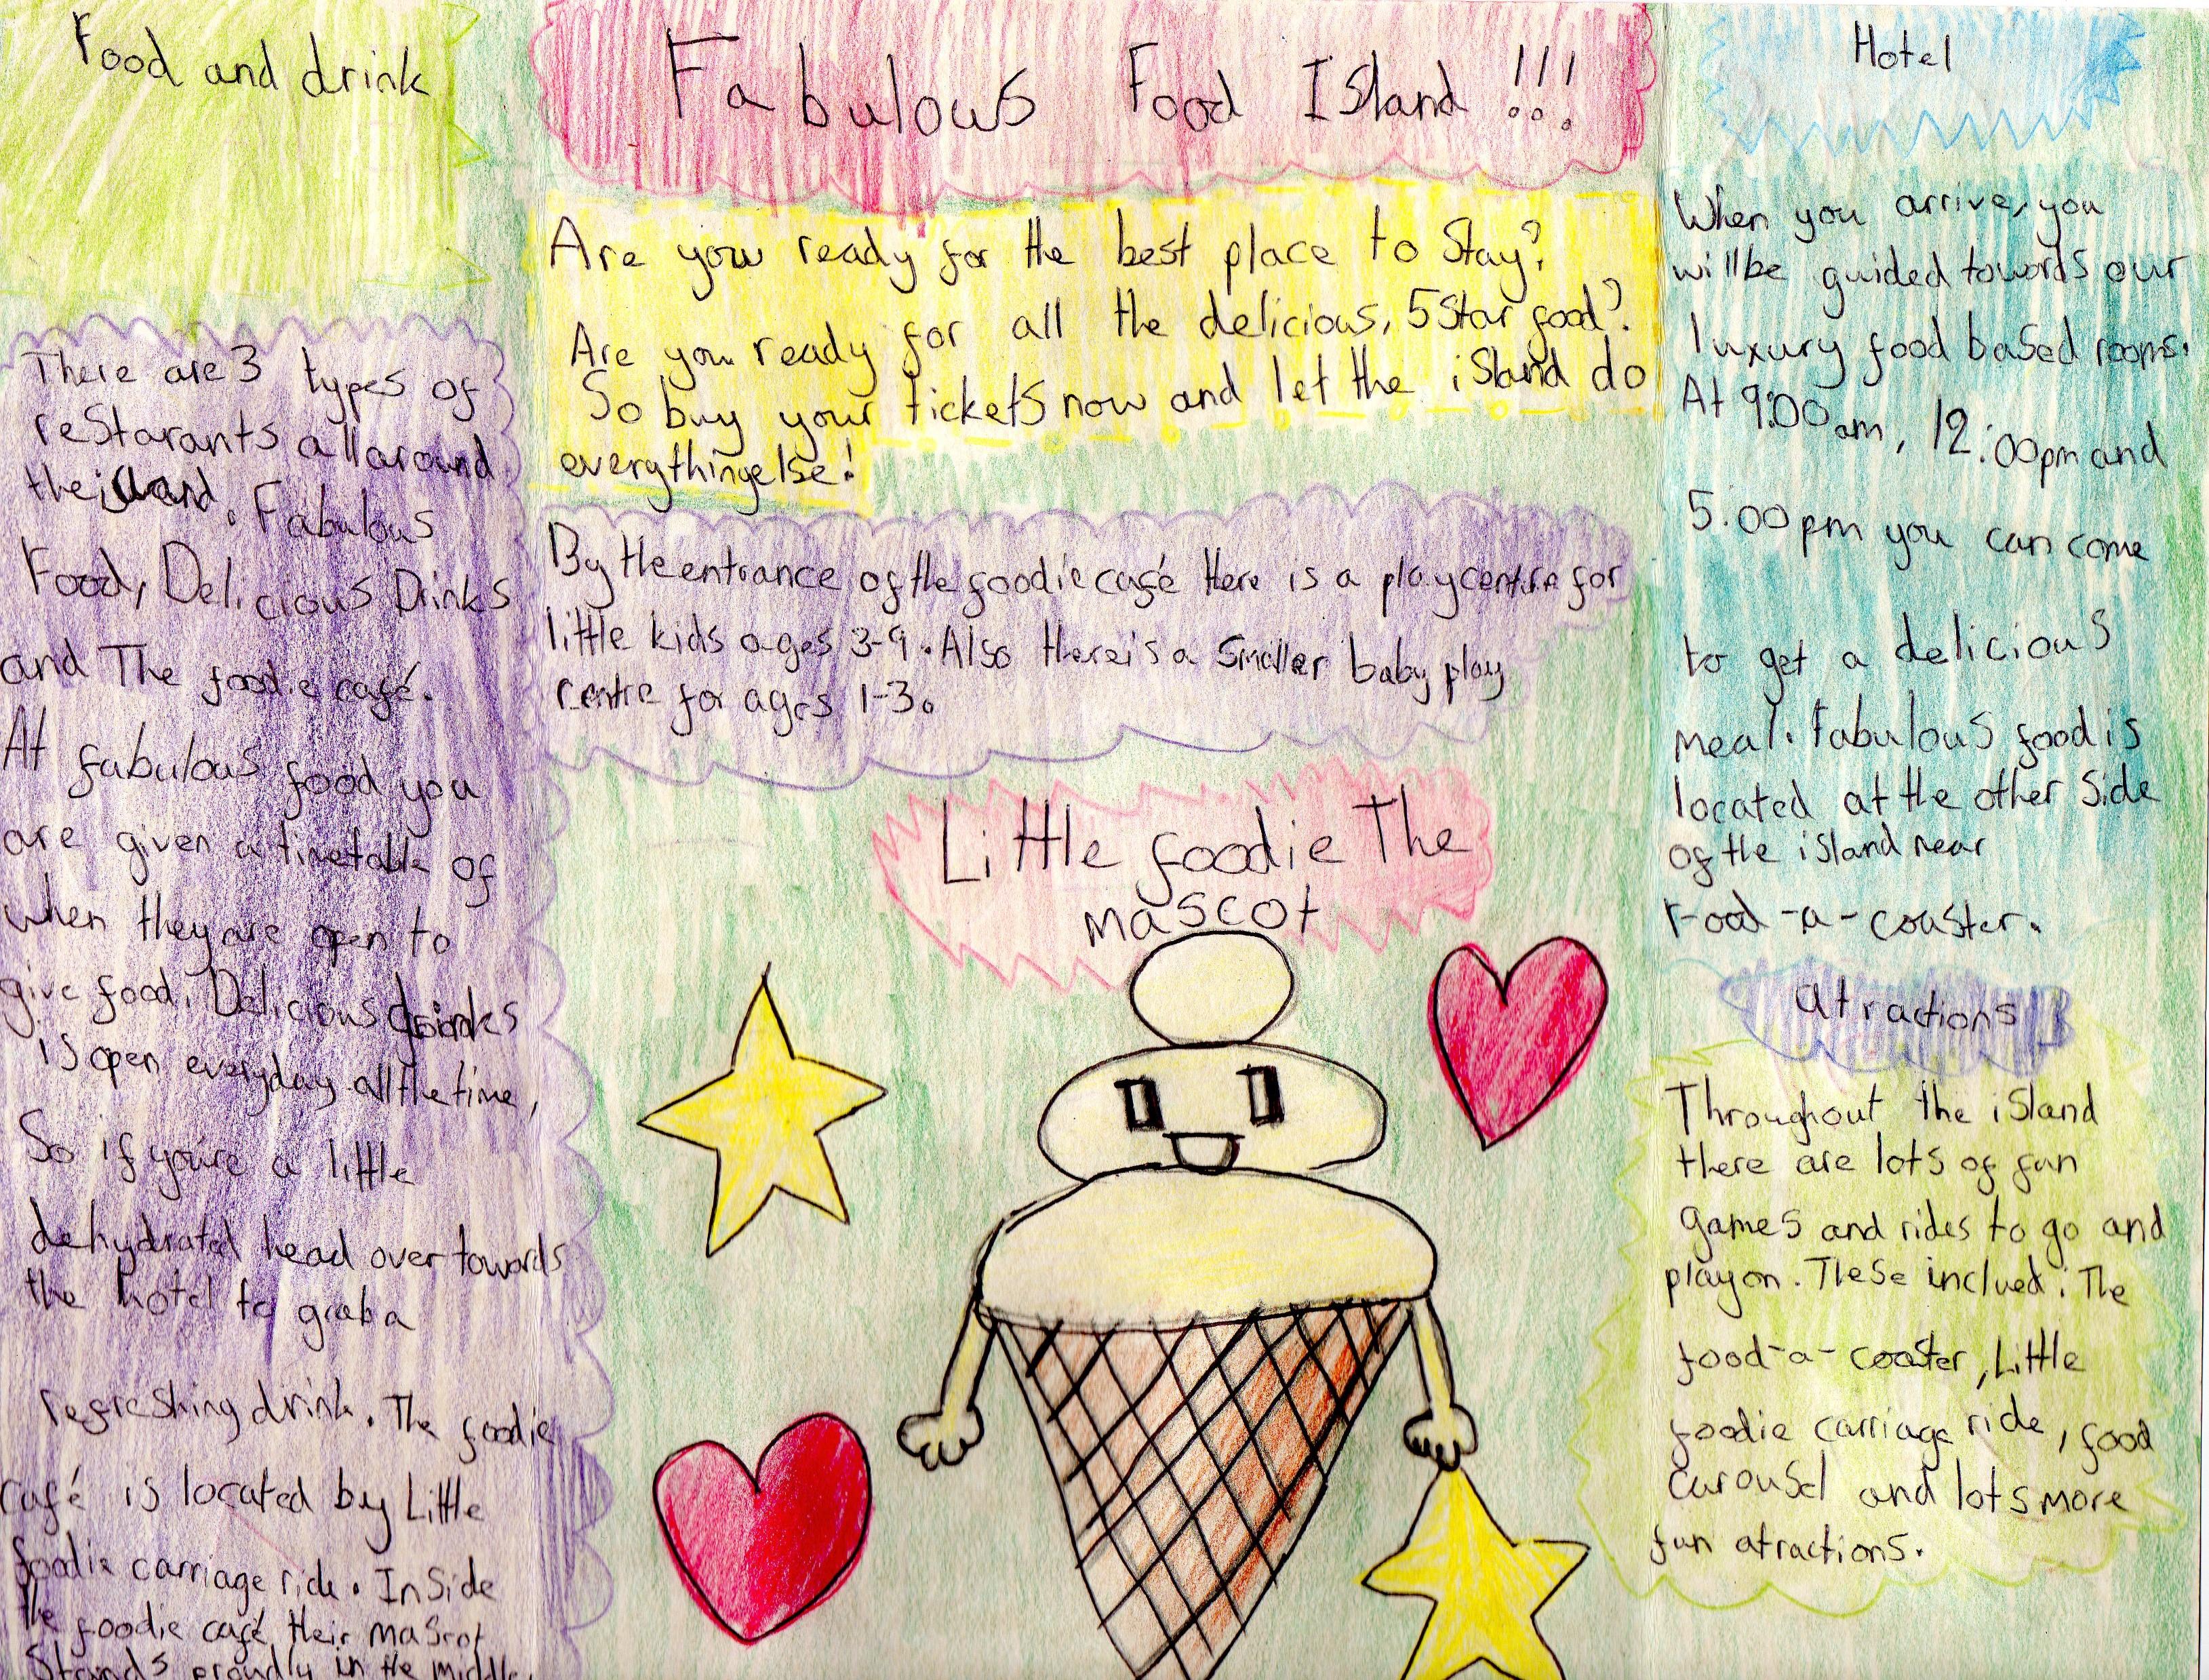 Food and drink
There are 3 types of
restarants all around
the island. Fabulous
Food, Delicious Drinks
and The foodie café.
At fabulous food you
are given a timetable of
when they are open to
give food. Delicious drinks
is open everyday all the time,
So if you're a little
dehydrated head over towards
the hotel to grab a
refreshing drink. The foodie
café is located by Little
foodie carriage ride. Inside
the foodie café their mascot
Stands proudly in the middle.
Fabulous Food Island !!!
Are you ready for the best place to Stay?
Are you ready for all the delicious, 5 Star food?
So buy your tickets now and let the island do
everything else!
By the entrance of the foodie café there is a play centre for
little kids ages 3-9. Also there's a smaller baby play
centre for ages 1-3.
Little foodie The
mascot
Hotel
When you arrive, you
will be guided towards our
luxury food based rooms.
At 9:00 am, 12:00pm and
5.00pm you can come
to get a delicious
meal. Fabulous food is
located at the other side
of the island near
Food-a-coaster.
atractions
Throughout the island
there are lots of fun
games and rides to go and
play on. These inclued: The
food-a-coaster, Little
foodie carriage ride, food
carousel and lots more
fun atractions.